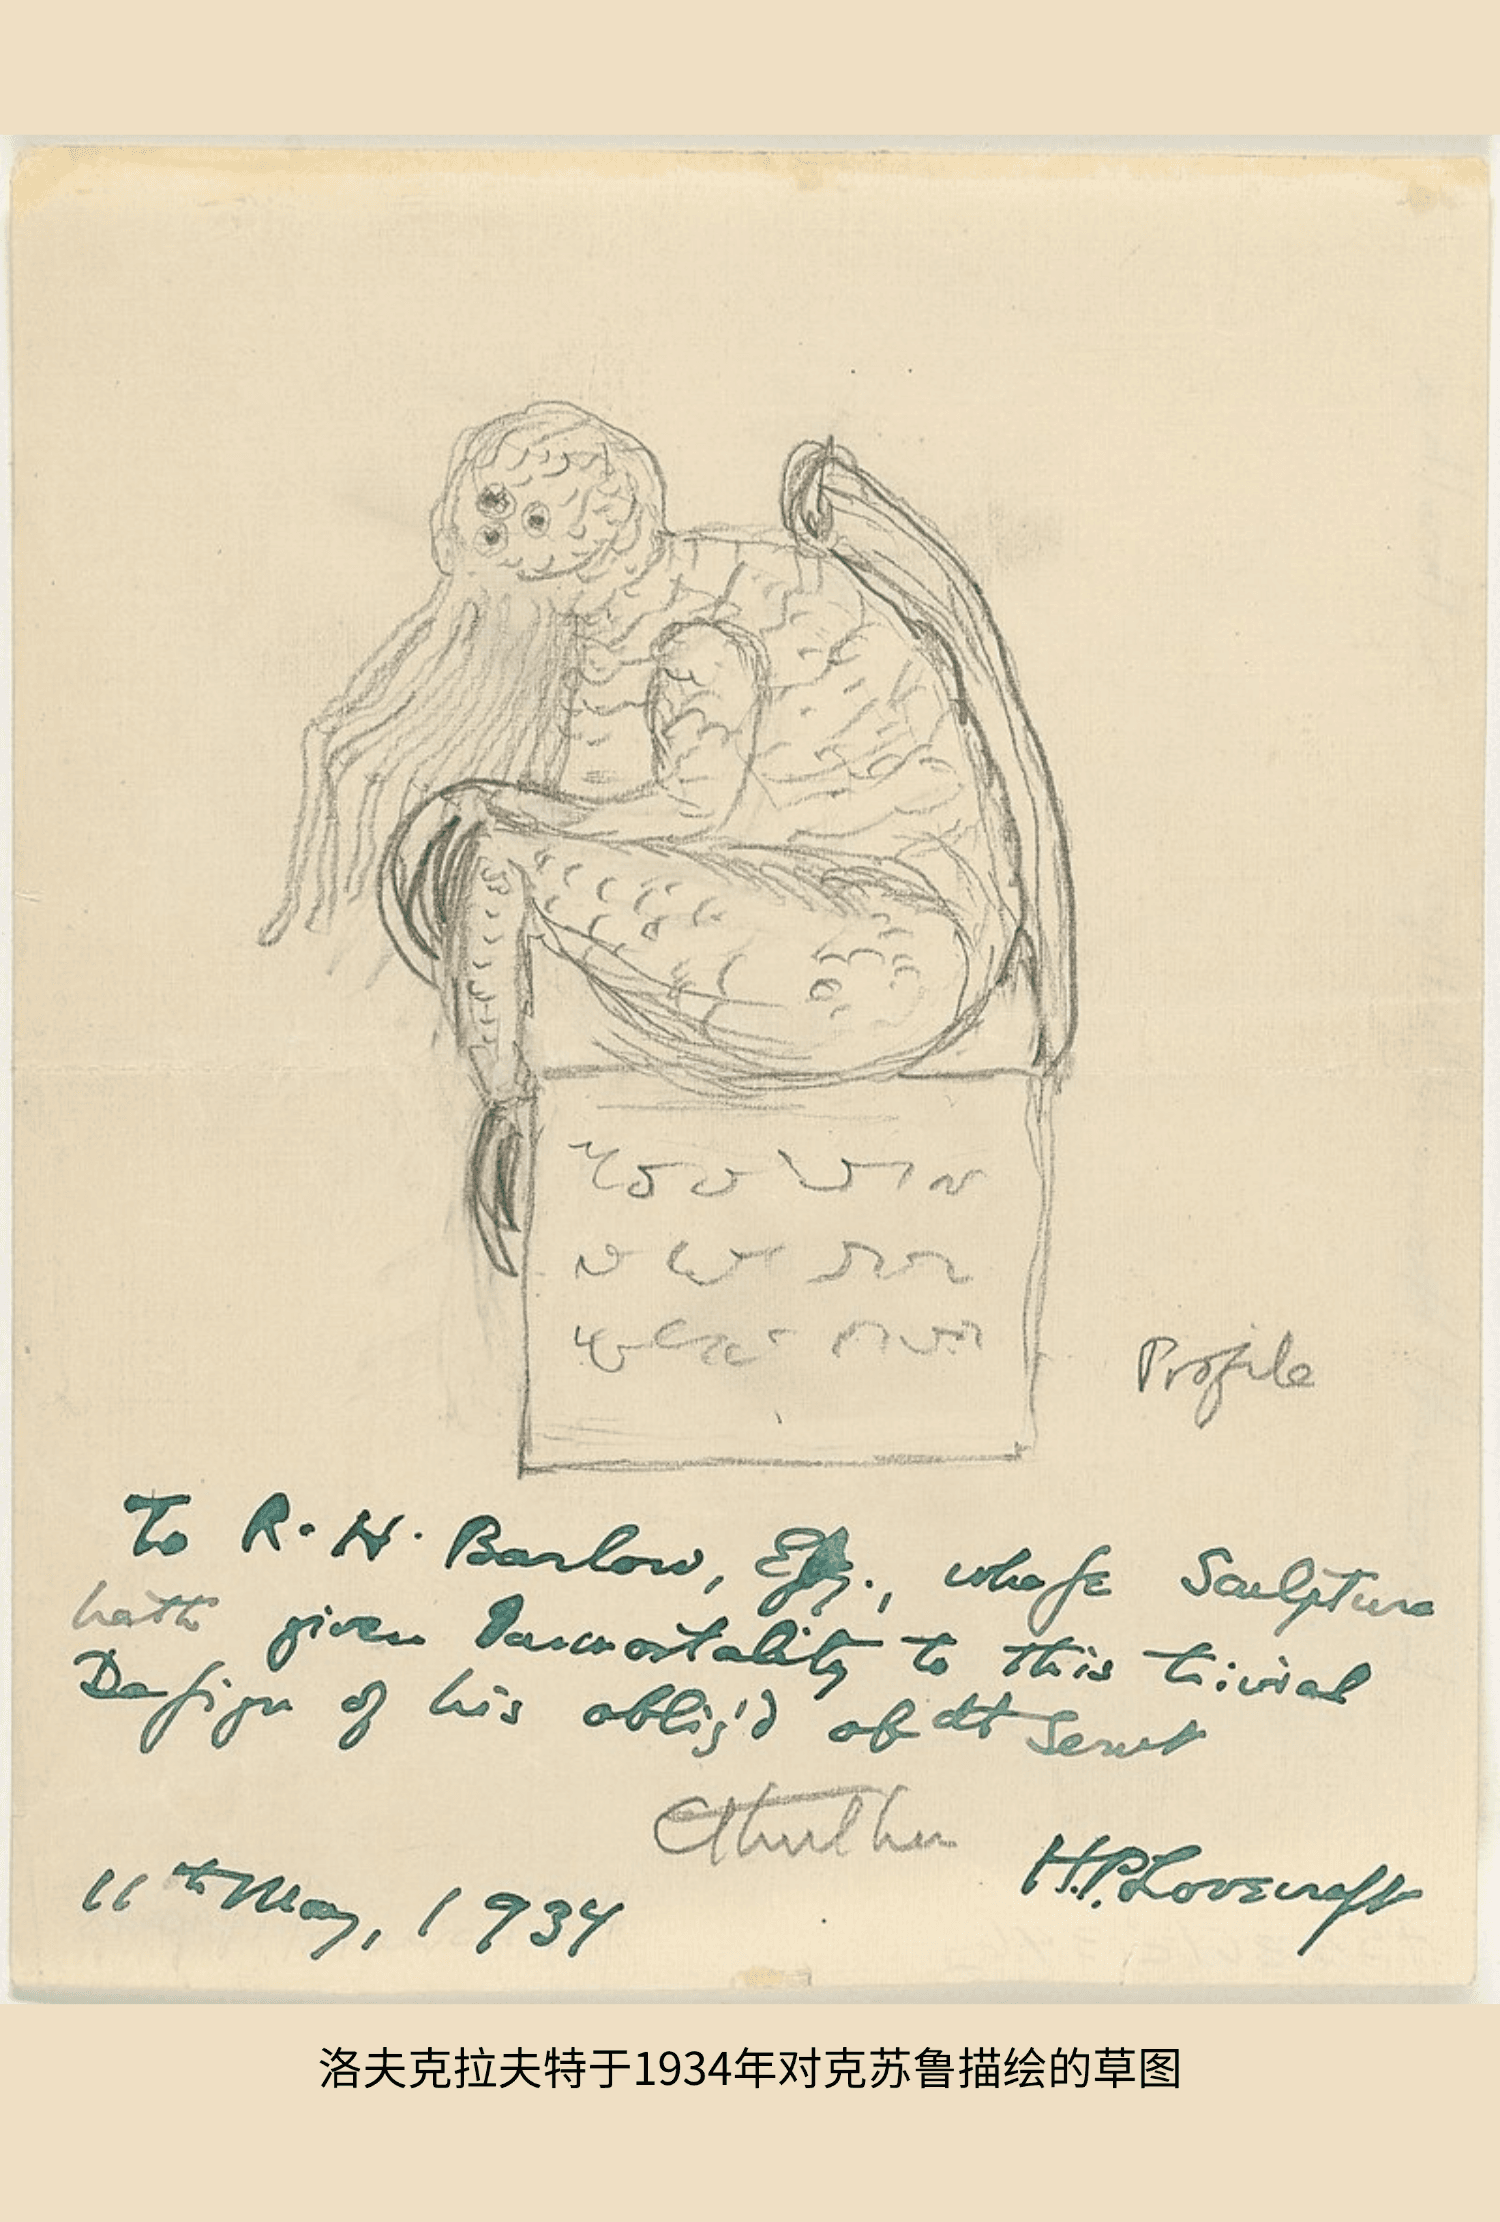 Profile
To R. H. Barlow, Esq., whose Sculpture
hath given Immortality to this trivial
Design of his oblig'd obdt Servt
Cthulhu
H.P. Lovecraft
11th May, 1934
洛夫克拉夫特于1934年对克苏鲁描绘的草图